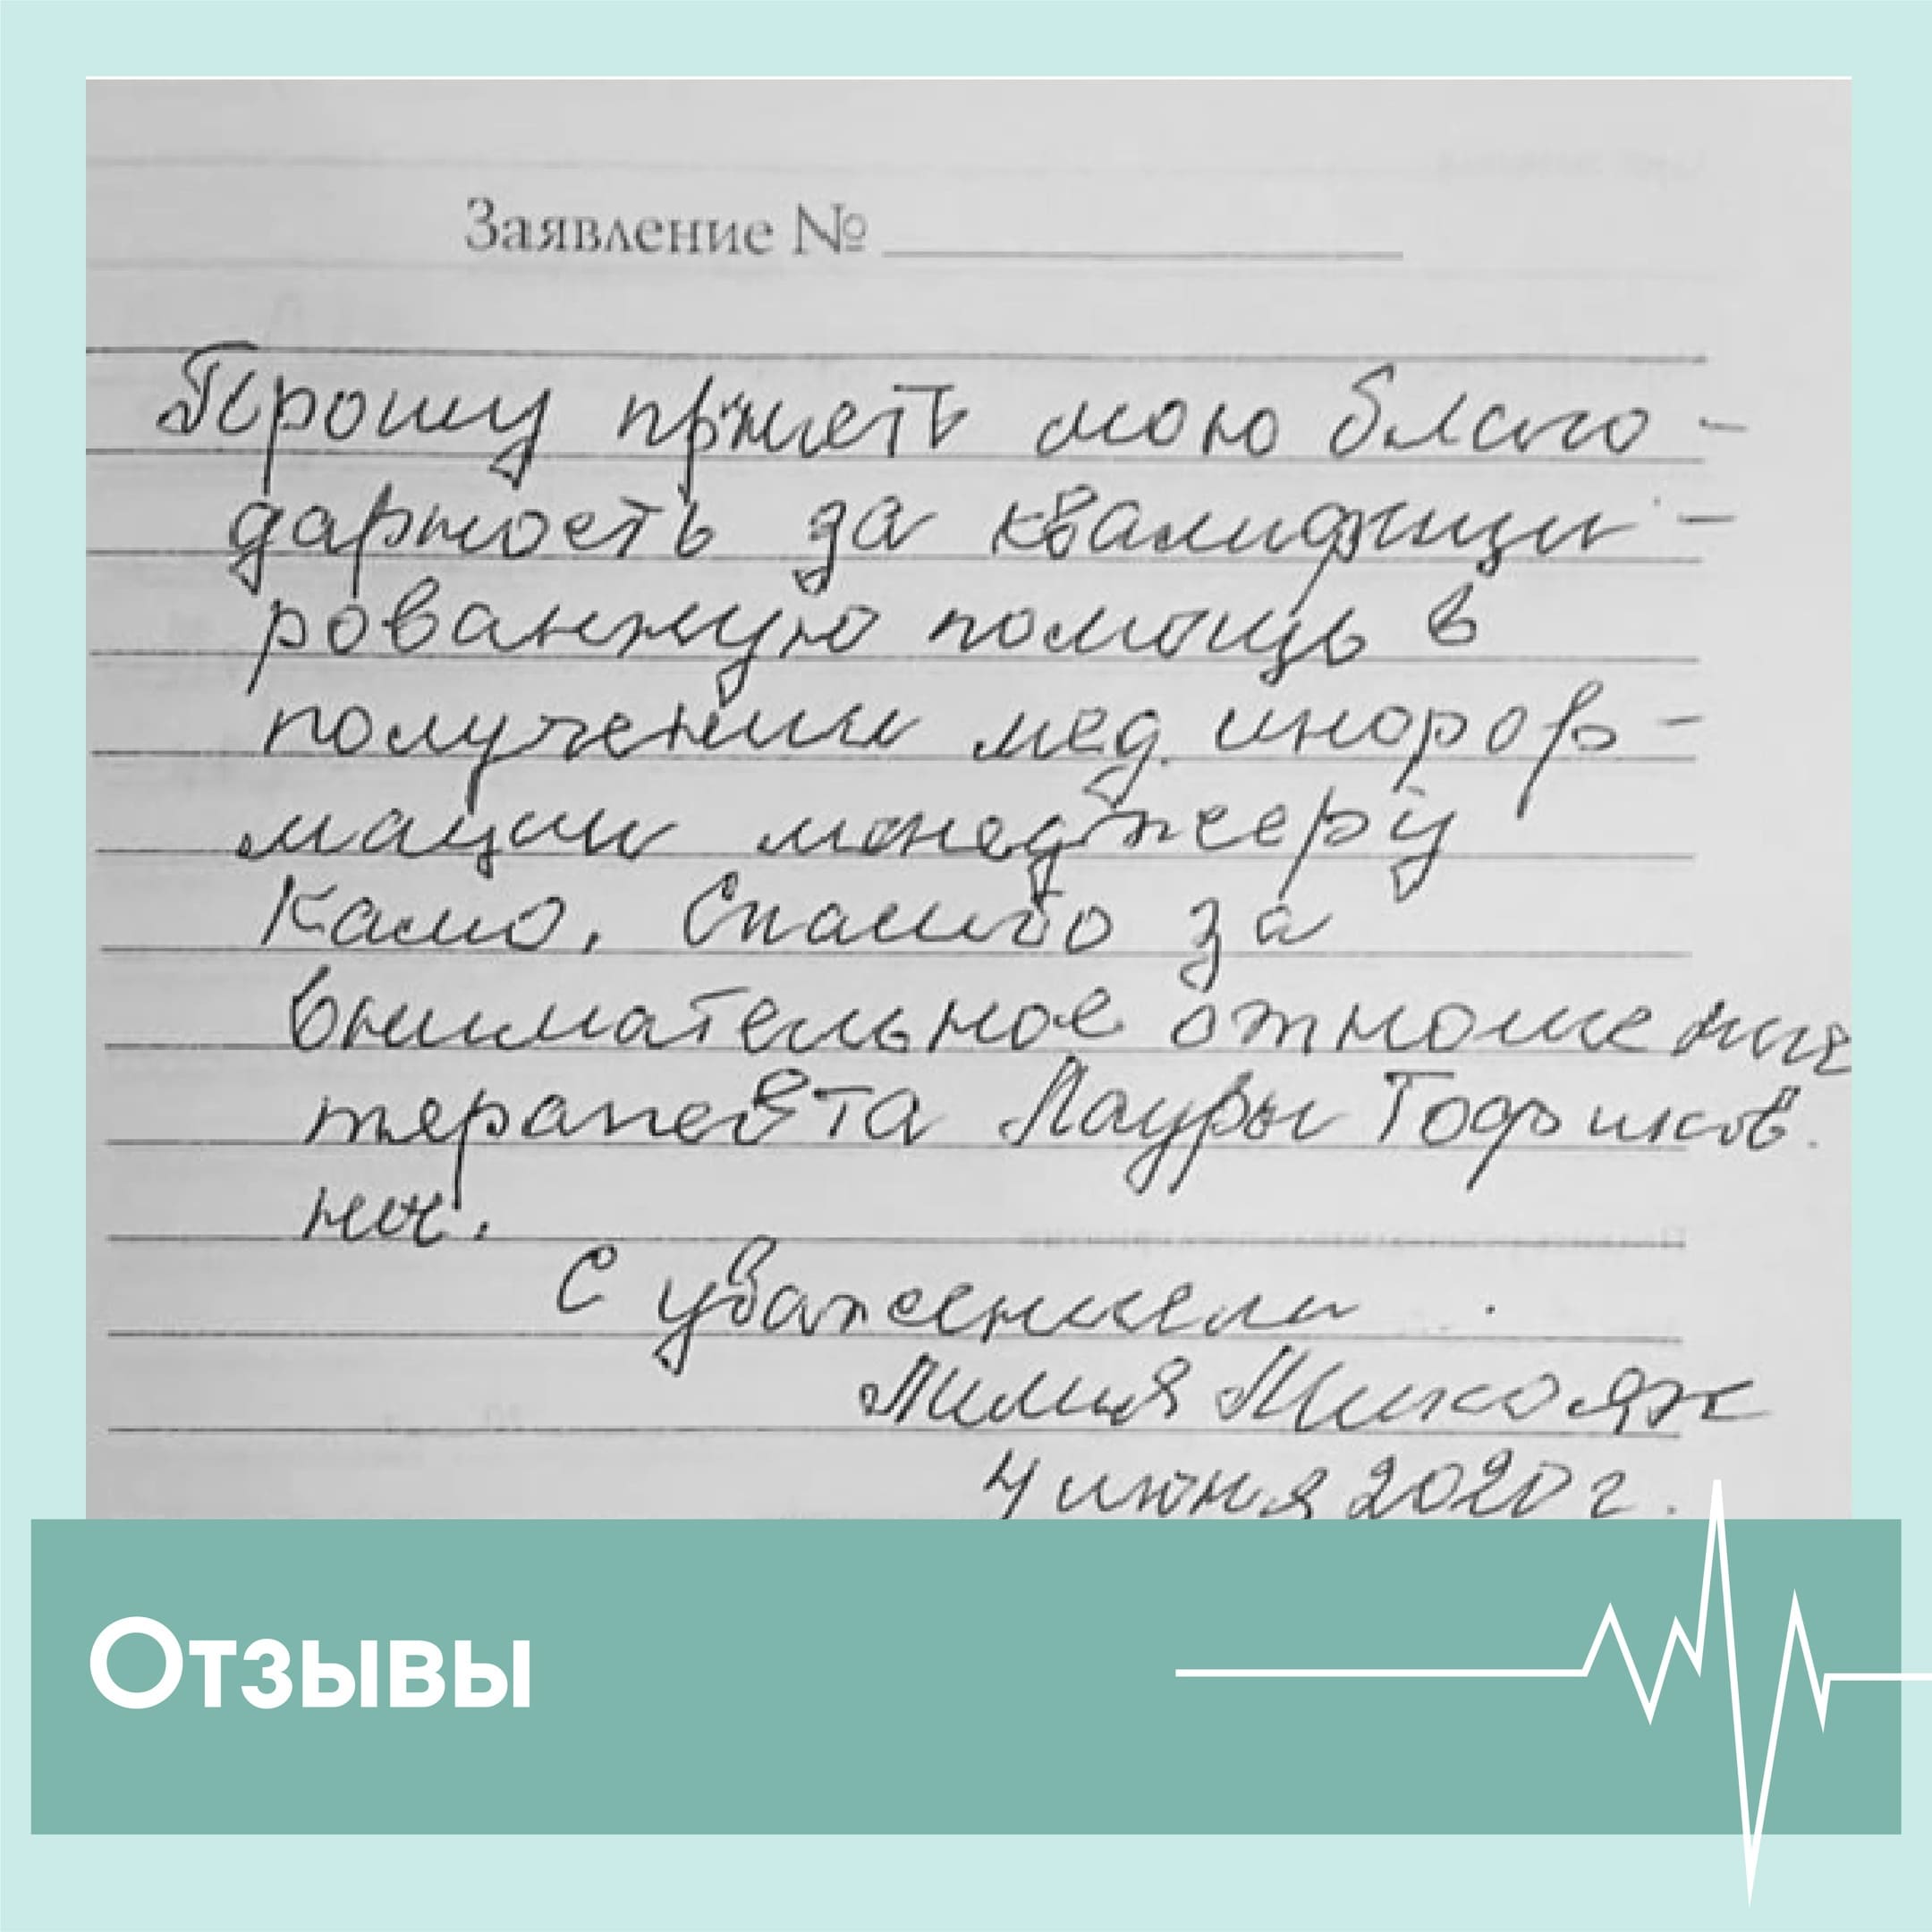 Заявление №
Прошу принять мою благо-
дарность за квалифици-
рованную помощь в
получении мед. информ-
мации менеджеру
Камо. Спасибо за
внимательное отношение
терапевта Лауры Тофиков.
ны.
С уважением
Лилия Микояж
4 июня 2020 г.
Отзывы